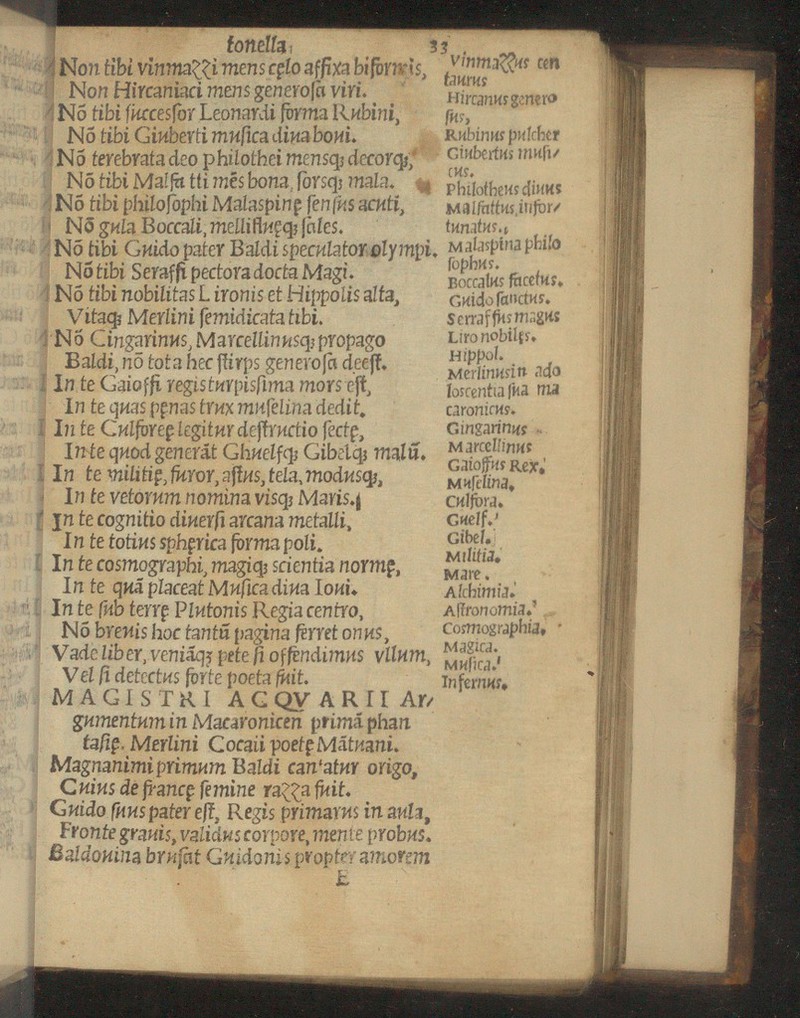 tonella,
33
Non tibi vinmazzi mens cęlo affixa biformis,
Non Hircaniaci mens generoſa viri.
Nō tibi ſucceſſor Leonardi forma Rubini,
Nō tibi Giuberti muſica diua boui.
Nō terebrata deo philothei mensq; decorq;
Nō tibi Malfa tti mēs bona, ſorsq; mala.
Nō tibi philoſophi Malaspinę ſenſus acuti,
Nō gula Boccali, mellifluęq; ſales.
Nō tibi Guido pater Baldi speculator olympi.
Nō tibi Seraffi pectora docta Magi.
Nō tibi nobilitas L ironis et Hippolis alta,
Vitaq; Merlini ſemidicata tibi.
Nō Cingarinus, Marcellinusq; propago
Baldi, nō tota hec ſtirps generoſa deeſt.
In te Gaioffi regis turpisſima mors eſt,
In te quas pęnas trux muſelina dedit.
In te Culforeę legitur deſtructio ſectę,
In te quod generāt Ghuelfq; Gibelq; malū.
In te militię, furor, aſtus, tela, modusq;,
In te vetorum nomina visq; Maris.
In te cognitio diuerſi arcana metalli,
In te totius sphęrica forma poli.
In te cosmographi, magiq; scientia normę,
In te quā placeat Muſica diua Ioui.
In te ſub terrę Plutonis Regia centro,
Nō breuis hoc tantū pagina ferret onus,
Vade liber, veniāq; pete ſi offendimus vllum,
Vel ſi detectus forte poeta fuit.
MAGISTRI ACQVARII Ar⸗
gumentum in Macaronicen primā phan
taſię. Merlini Cocaii poetę Mātuani.
Magnanimi primum Baldi cantatur origo,
Cuius de francę ſemine razza fuit.
Guido ſuus pater eſt, Regis primarus in aula,
Fronte grauis, validus corpore, mente probus.
Baldouina bruſat Guidonis propter amorem
E
Vinmazzus cen
taurus
Hircanus genero
ſus,
Rubinus pulcher
Giubertus muſi⸗
cus.
Philotheus diuus
Malfattus infor⸗
tunatus.
Malaspina philo
ſophus.
Boccalus facetus.
Guido ſanctus.
Serraffus magus
Liro nobilęs.
Hippol.
Merlinus in ado
loscentia ſua ma
caronicus.
Gingarinus
Marcellinus
Gaioffus Rex,
Muſelina,
Culfora.
Guelf.
Gibel.
Militia.
Mare.
Alchimia.
Aſtronomia.
Cosmographia,
Magica.
Muſica.
Infernus.